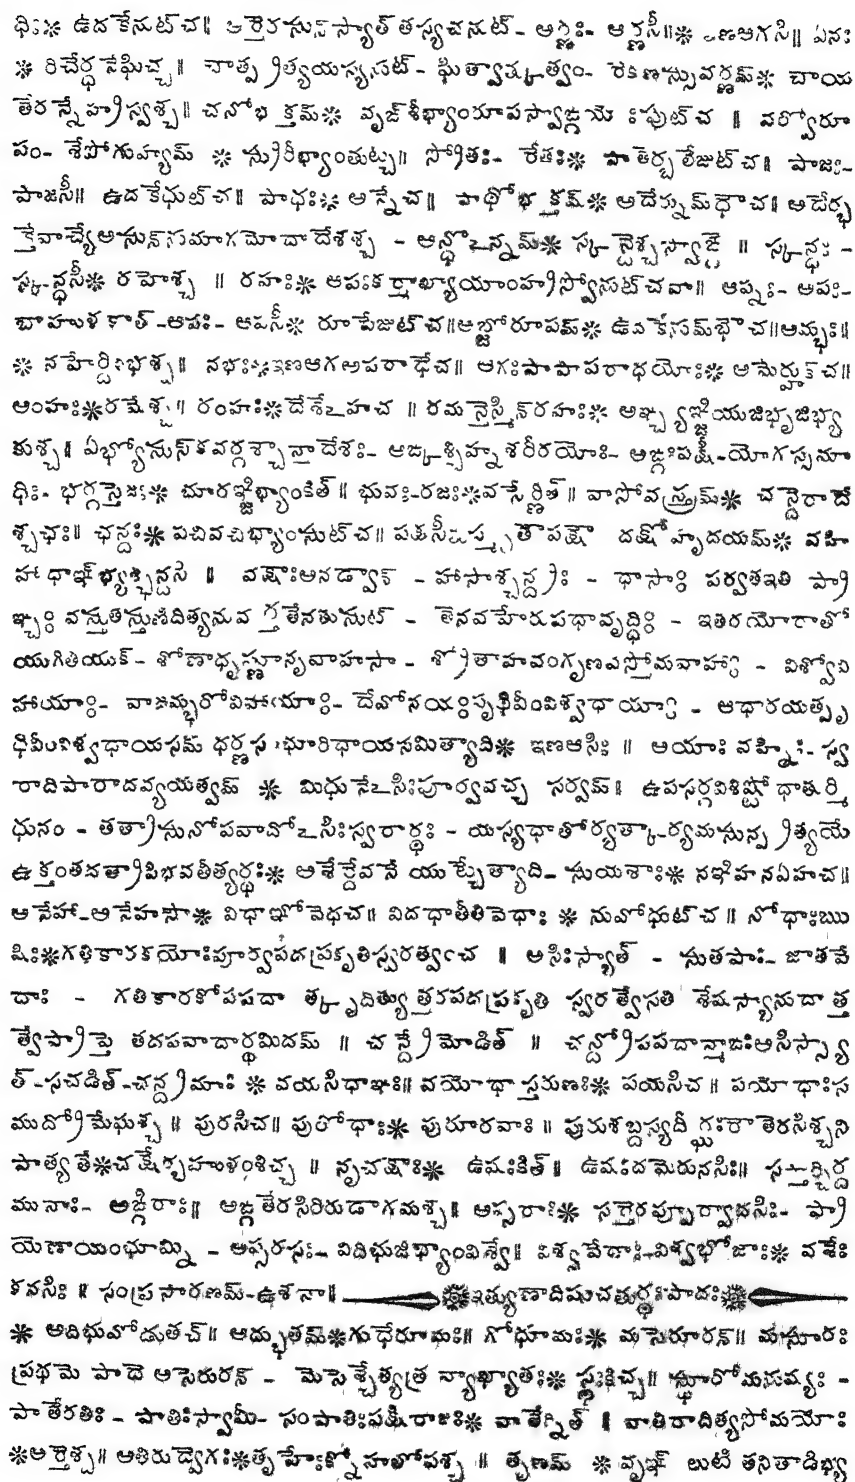 ధిః❊ ఉదకేనుట్చ॥ అర్తేరసున్ స్యాత్తస్యచనుట్- అర్ణః- అర్ణసీ॥❊ ఇణఆగసి॥ ఏనః
❊ రిచేర్ధనేఘిచ్చ॥ చాత్ప్రత్యయస్యనుట్- ఘిత్వాత్కుత్వం- రేకణస్సువర్ణమ్❊ చాయ
తేరన్నేహ్రస్వశ్చ॥ చనోభక్తమ్❊ వృఙ్శీఙ్భ్యాంరూపస్వాఙ్గయోఃపుట్చ॥ వర్పోరూ
పం- శేపోగుహ్యమ్ ❊ స్రురీభ్యాంతుట్చ॥ స్రోతః- రేతః❊ పాతేర్బలేజుట్చ॥ పాజః-
పాజసీ॥ ఉదకేథుట్చ॥ పాథః❊ అన్నేచ॥ పాథోభక్తమ్❊ అదేర్నుమ్ధౌచ॥ అదేర్భ
క్తేవాచ్యేఅసున్ నుమాగమోదాదేశశ్చ - అన్ధోఽన్నమ్❊ స్కన్దేశ్చస్వాఙ్గే ॥ స్కన్ధః -
స్కన్ధసీ❊ రహేశ్చ ॥ రహః❊ ఆపఃకర్మాఖ్యాయాంహ్రస్వోనుట్చవా॥ అప్నః- అపః-
బాహుళకాత్-ఆపః- ఆపసీ❊ రూపేజుట్చ॥అబ్జోరూపమ్❊ ఉదకేనుమ్భౌచ॥అమ్భః॥
❊ నహేర్దివిభశ్చ॥ నభః❊ఇణఆగఅపరాధేచ॥ ఆగఃపాపాపరాధయోః❊ అమేర్హుక్చ॥
అంహః❊రమేశ్చ॥ రంహః❊దేశేఽహచ ॥ రమన్తేఽస్మిన్రహః❊ అఞ్చ్యఞ్జియుజిభృజిభ్యః
కుశ్చ॥ ఏభ్యోసున్కవర్గశ్చాన్తాదేశః- అఙ్కశ్చిహ్నశరీరయోః- అఙ్గఃపక్షీ-యోగస్సమా
ధిః- భర్గస్తేజః❊ భూరఞ్జిభ్యాంకిత్॥ భువః-రజః❊వసేర్ణిత్॥ వాసోవస్త్రమ్❊ చన్దేరాదే
శ్చఛః॥ ఛన్దః❊పచివచిభ్యాంసుట్చ॥ పక్షసీతుస్మృతౌపక్షౌ దక్షోహృదయమ్❊ వహి
హాధాఞ్భ్యశ్ఛన్దసి ॥ వక్షాఃఅనడ్వాన్ - హాసాశ్చన్ద్రః - ధాసాః పర్వతఇతి ప్రా
ఞ్చః వస్తుతస్తుణిదిత్యనువర్తతేనతుసుట్ - తేనవహేరుపధావృద్ధిః - ఇతరయోరాతో
యుగితియుక్- శోణాధృష్ణూనృవాహసా - శ్రోతాహవంగృణవస్తోమవాహాః - విశ్వోవి
హాయాః- వాజమ్భరోవిహాయాః- దేవోనయఃపృథివీంవిశ్వధాయాః - అధారయత్పృ
థివీంవిశ్వధాయసమ్ ధర్ణసం భూరిధాయసమిత్యాది❊ ఇణఆసిః ॥ అయాః వహ్నిః- స్వ
రాదిపాఠాదవ్యయత్వమ్ ❊ మిథునేఽసిఃపూర్వవచ్చ సర్వమ్॥ ఉపసర్గవిశిష్టోధాతుర్మి
థునం - తత్రాసునోపవాదోఽసిఃస్వరార్థః - యస్యధాతోర్యత్కార్యమసున్ప్రత్యయే
ఉక్తంతదత్రాపిభవతీత్యర్థః❊ అశేర్దేవనే యుట్చేత్యాది- సుయశాః❊ నఞిహనఏహచ॥
అనేహా-అనేహసౌ❊ విధాఞోవేధచ॥ విదధాతీతివేధాః ❊ నువోధుట్చ॥ నోధాఃఋ
షిః❊గతికారకయోఃపూర్వపదప్రకృతిస్వరత్వంచ ॥ అసిఃస్యాత్ - సుతపాః- జాతవే
దాః - గతికారకోపపదాత్కృదిత్యుత్తరపదప్రకృతి స్వరత్వేసతి శేషస్యానుదాత్త
త్వేప్రాప్తే తదపవాదార్థమిదమ్ ॥ చన్ద్రేమోడిత్ ॥ చన్ద్రోపపదాన్మాఙఃఅసిస్స్యా
త్-సచడిత్-చన్ద్రమాః ❊ వయసిధాఞః॥వయోధాస్తరుణః❊ పయసిచ॥ పయోధాఃస
ముద్రోమేఘశ్చ॥ పురసిచ॥ పురోధాః❊ పురూరవాః ॥ పురుశబ్దస్యదీర్ఘఃరౌతేరసిశ్చని
పాత్యతే❊చక్షేర్బహుళంశిచ్చ ॥ నృచక్షాః❊ ఉషఃకిత్॥ ఉషః దమేరునసిః॥ సప్తార్చిర్ద
మునాః- అఙ్గిరాః॥ అఙ్గతేరసిరిరుడాగమశ్చ॥ అప్సరాః❊ సర్తేరప్పూర్వాదసిః- ప్రా
యేణాయంభూమ్ని - అప్సరసః- విదిభుజిభ్యాంవిశ్వే॥ విశ్వవేదాః-విశ్వభోజాః❊ వశేః
కనసిః ॥ సంప్రసారణమ్-ఉశనా॥ ❊ఇత్యుణాదిషుచతుర్థఃపాదః❊
❊ అదిభువోడుతచ్॥ అద్భుతమ్❊గుధేరూమః॥ గోధూమః❊ మసేరూరన్॥ మసూరః
ప్రథమే పాదే అసేరురన్ - మసేశ్చేత్యత్ర వ్యాఖ్యాతః❊ స్థఃకిచ్చ॥ స్థూరోమనుష్యః -
పాతేరతిః - పాతిఃస్వామీ- సంపాతిఃపక్షిరాజః❊ వాతేర్నిత్ ॥ వాతిరాదిత్యసోమయోః
❊అర్తేశ్చ॥ అతిరుద్వేగః❊తృహేఃక్నోహలోపశ్చ ॥ తృణమ్ ❊ వృఞ్ లుటి తనితాడిభ్య